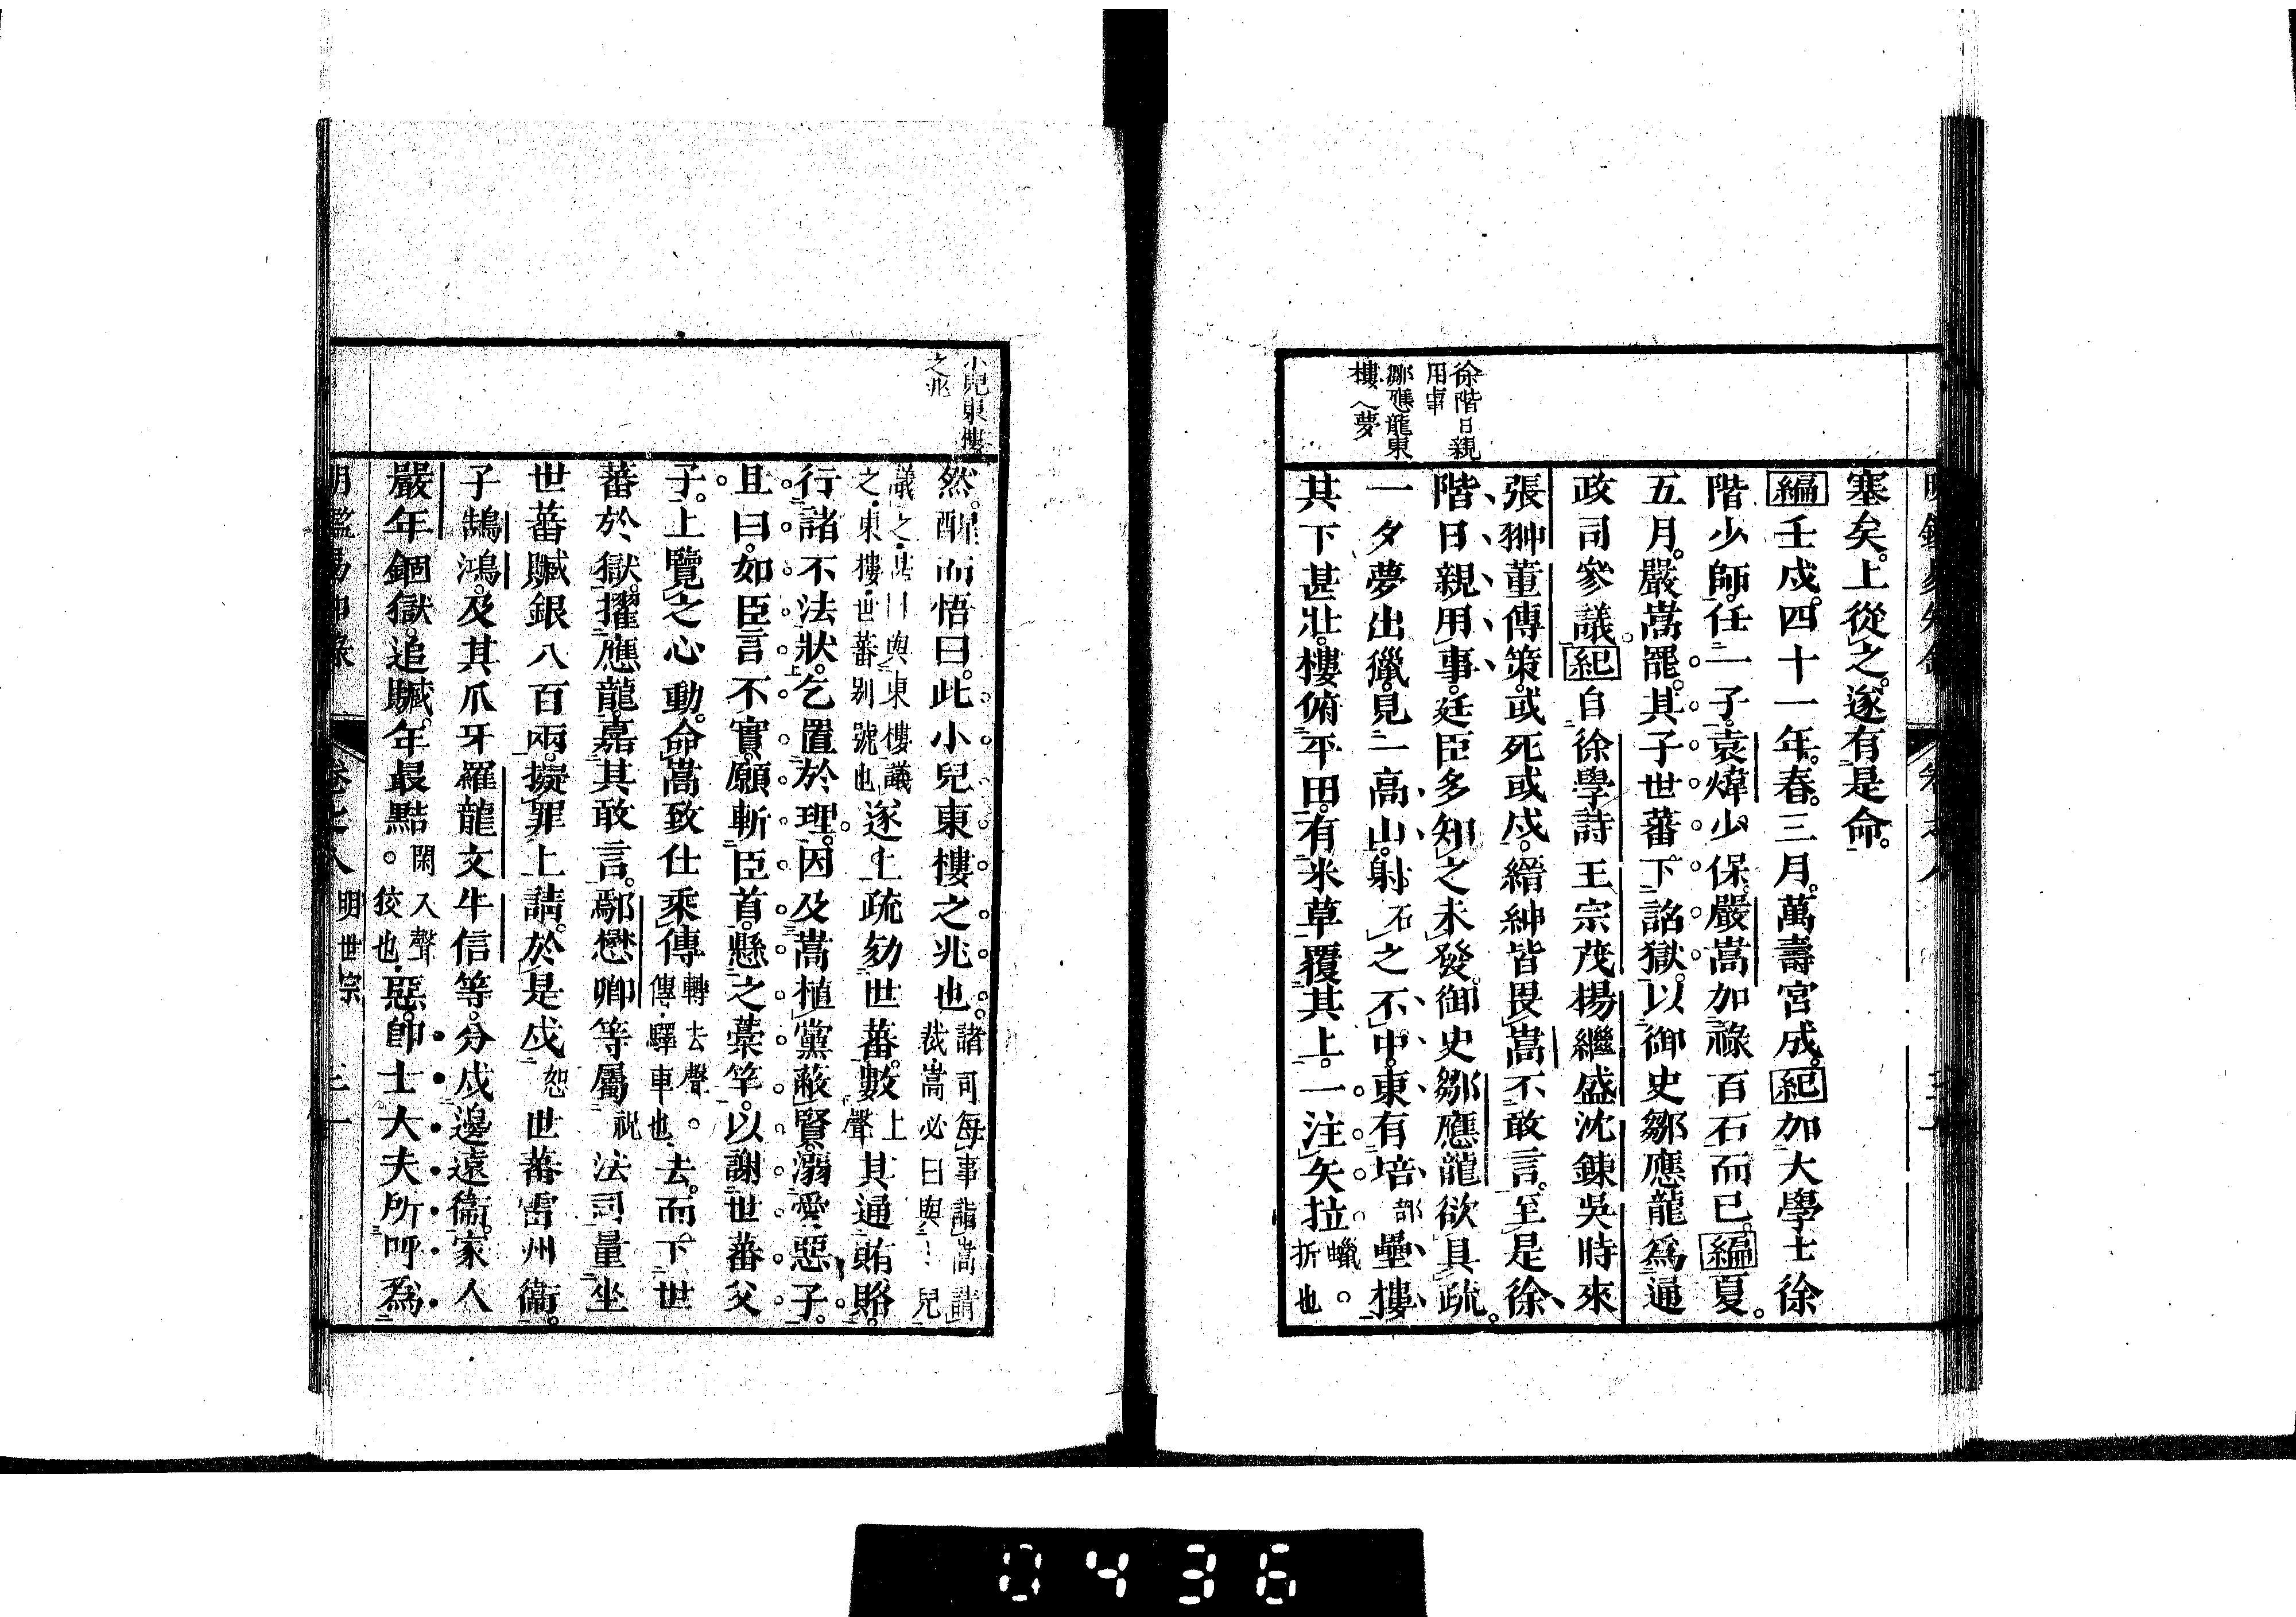 塞矣。上從之。遂有是命。
編壬戌。四十一年。春。三月。萬壽宮成。紀加大學士徐
階少師。任一子。袁煒少保。嚴嵩加祿百石而已。編夏。
五月。嚴嵩罷。其子世蕃下詔獄。以御史鄒應龍爲通
政司參議。紀自徐學詩王宗茂楊繼盛沈鍊吳時來
張翀董傳策。或死或戍。縉紳皆畏嵩不敢言。至是徐
階日親用事。廷臣多知之未發。御史鄒應龍欲具疏。
一夕夢出獵。見一高山。射石之不中。東有培部壘樓
其下甚壯。樓俯平田。有米草覆其上。一注矢拉蠟。折也
徐階日親
用事
鄒應龍東
樓ヘ夢
然。醒而悟曰。此小兒東樓之兆也。諸司每事詣嵩請
裁嵩必曰與…兒
議之。嵩曰與東樓議
之。東樓。世蕃別號也遂上疏劾世蕃。數上聲其通賄賂。
行諸不法狀。乞置於理。因及嵩植黨蔽賢溺愛惡子。
且曰。如臣言不實。願斬臣首。懸之藁竿。以謝世蕃父
子。上覽之心動。命嵩致仕乘傳轉去聲。傳。驛車也。去。而下世
蕃於獄。擢應龍。嘉其敢言。鄢懋卿等屬祝法司量坐
世蕃贓銀八百兩。擬罪上請。於是戍恕世蕃雷州衞。
子鵠鴻。及其爪牙羅龍文牛信等。分戍邊遠衞。家人
嚴年錮獄。追贓。年最黠閑入聲。狡也。惡。卽士大夫所呼爲
小兒東樓
之兆
明鑑易知錄 卷之八 明世宗 三十
0436